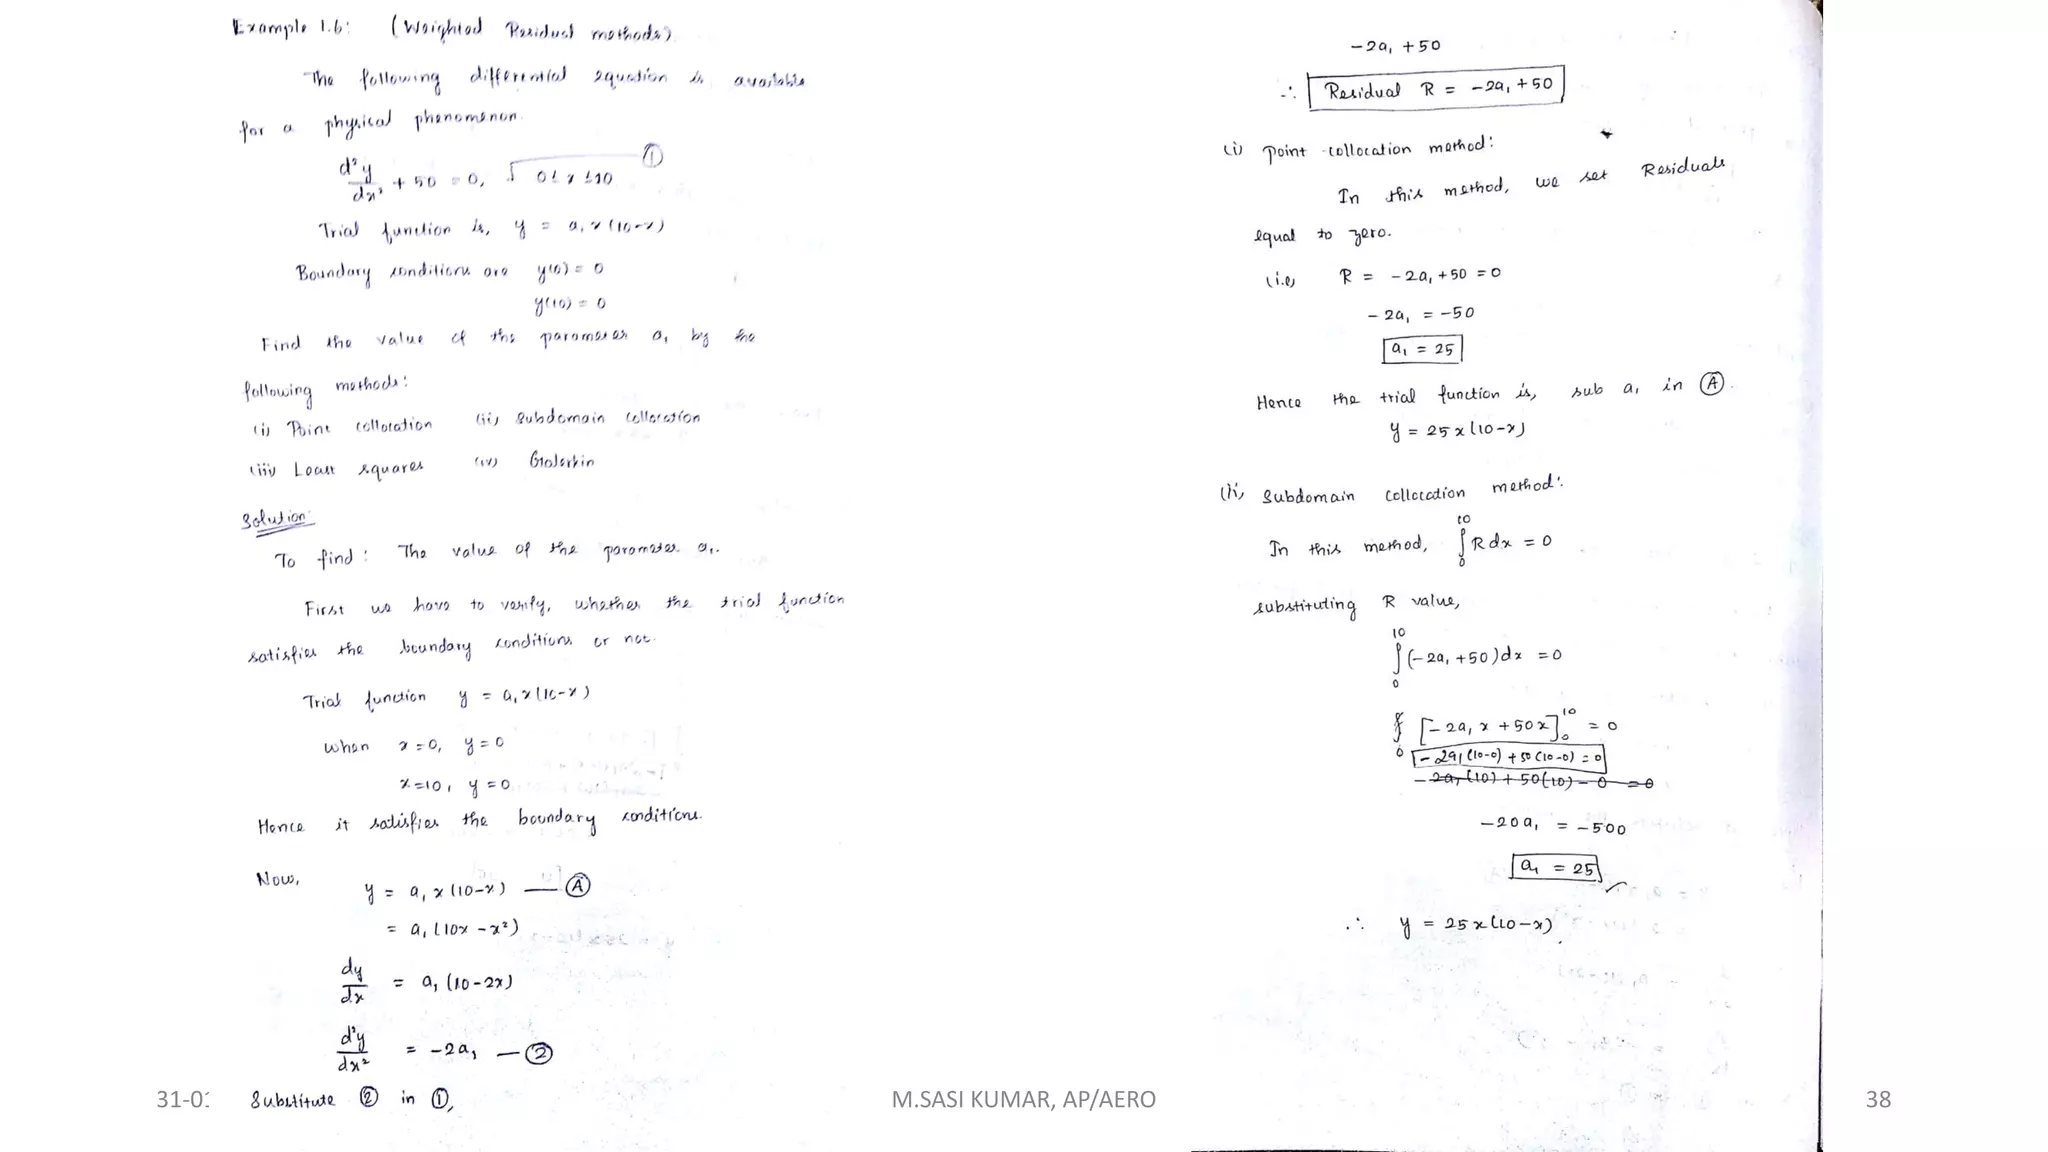 Example 1.6: (Weighted Residual methods)
The following differential equation is available
for a physical phenomenon.
d²y/dx² + 50 = 0, 0 ≤ x ≤ 10 ①
Trial function is, y = a₁ x (10-x)
Boundary conditions are y(0) = 0
y(10) = 0
Find the value of the parameter a₁ by the
following methods:
(i) Point collocation (ii) Subdomain collocation
(iii) Least squares (iv) Galerkin
Solution:
To find: The value of the parameter a₁.
First we have to verify, whether the trial function
satisfies the boundary conditions or not.
Trial function y = a₁ x (10-x)
when x=0, y=0
x=10, y=0
Hence it satisfies the boundary conditions.
Now,
y = a₁ x (10-x) — Ⓐ
= a₁ (10x - x²)
dy/dx = a₁ (10-2x)
d²y/dx² = -2a₁ — ②
Substitute ② in ①,
-2a₁ +50
∴ Residual R = -2a₁ +50
(i) Point collocation method:
In this method, we set Residuals
equal to zero.
(i.e) R = -2a₁ +50 = 0
-2a₁ = -50
a₁ = 25
Hence the trial function is, sub a₁ in Ⓐ.
y = 25 x (10-x)
(ii) Subdomain collocation method:
In this method, ∫₀¹⁰ R dx = 0
substituting R value,
∫₀¹⁰ (-2a₁ +50) dx = 0
[-2a₁ x + 50x]₀¹⁰ = 0
-2a₁(10-0) + 50(10-0) = 0
-2a₁(10) + 50(10) - 0 = 0
-20a₁ = -500
a₁ = 25 ✓
∴ y = 25 x (10-x).
31-01
M.SASI KUMAR, AP/AERO
38